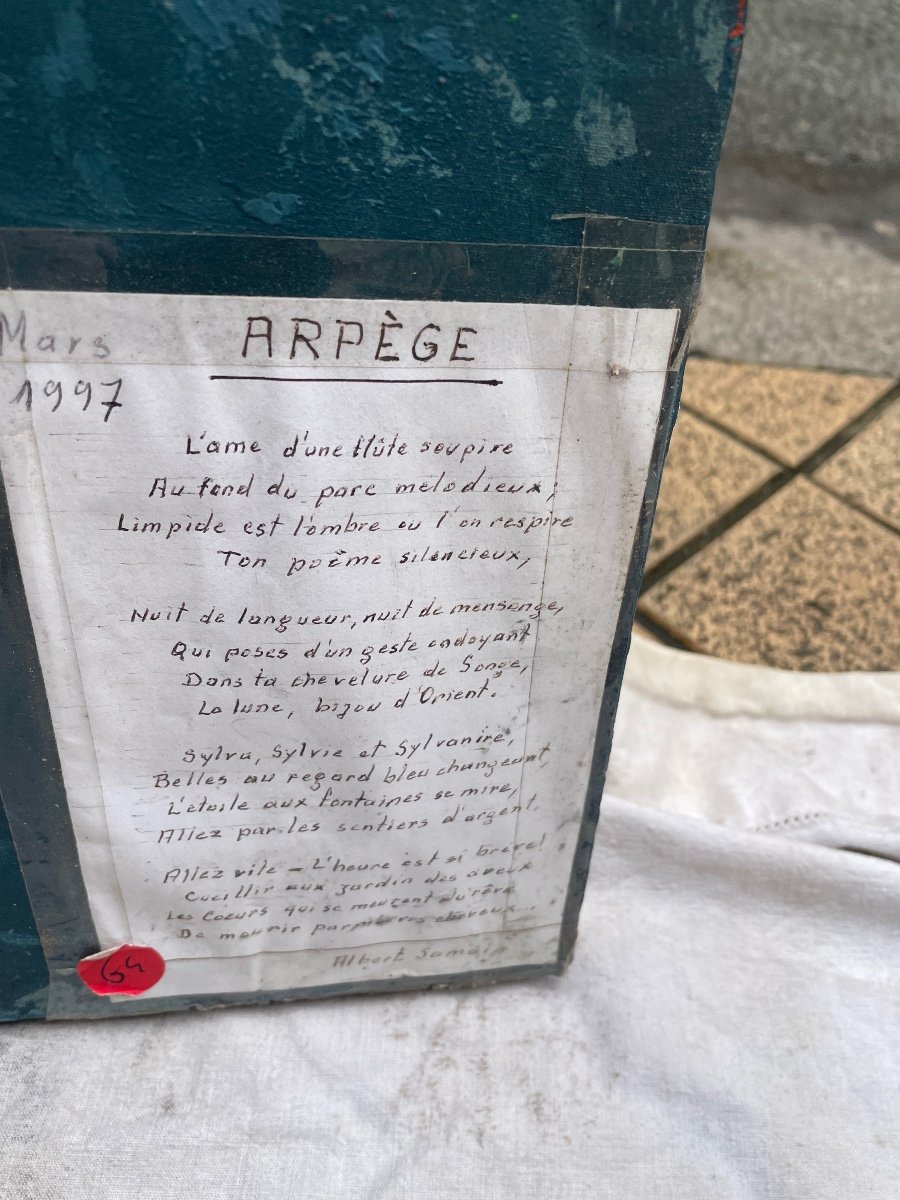 Mars
1997
ARPÈGE
L'ame d'une flûte soupire
Au fond du parc melodieux;
Limpide est l'ombre ou l'on respire
Ton poëme silencieux,
Nuit de langueur, nuit de mensonge,
Qui poses d'un geste ondoyant
Dans ta chevelure de Songe,
La lune, bijou d'Orient.
Sylva, Sylvie et Sylvanire,
Belles au regard bleu changeant,
L'etoile aux fontaines se mire,
Allez par les sentiers d'argent.
Allez vite - L'heure est si breve!
Cueillir aux jardin des aveux
Les Coeurs qui se meurent du rêve
De mourir parmi vos cheveux...
Albert Samain
64